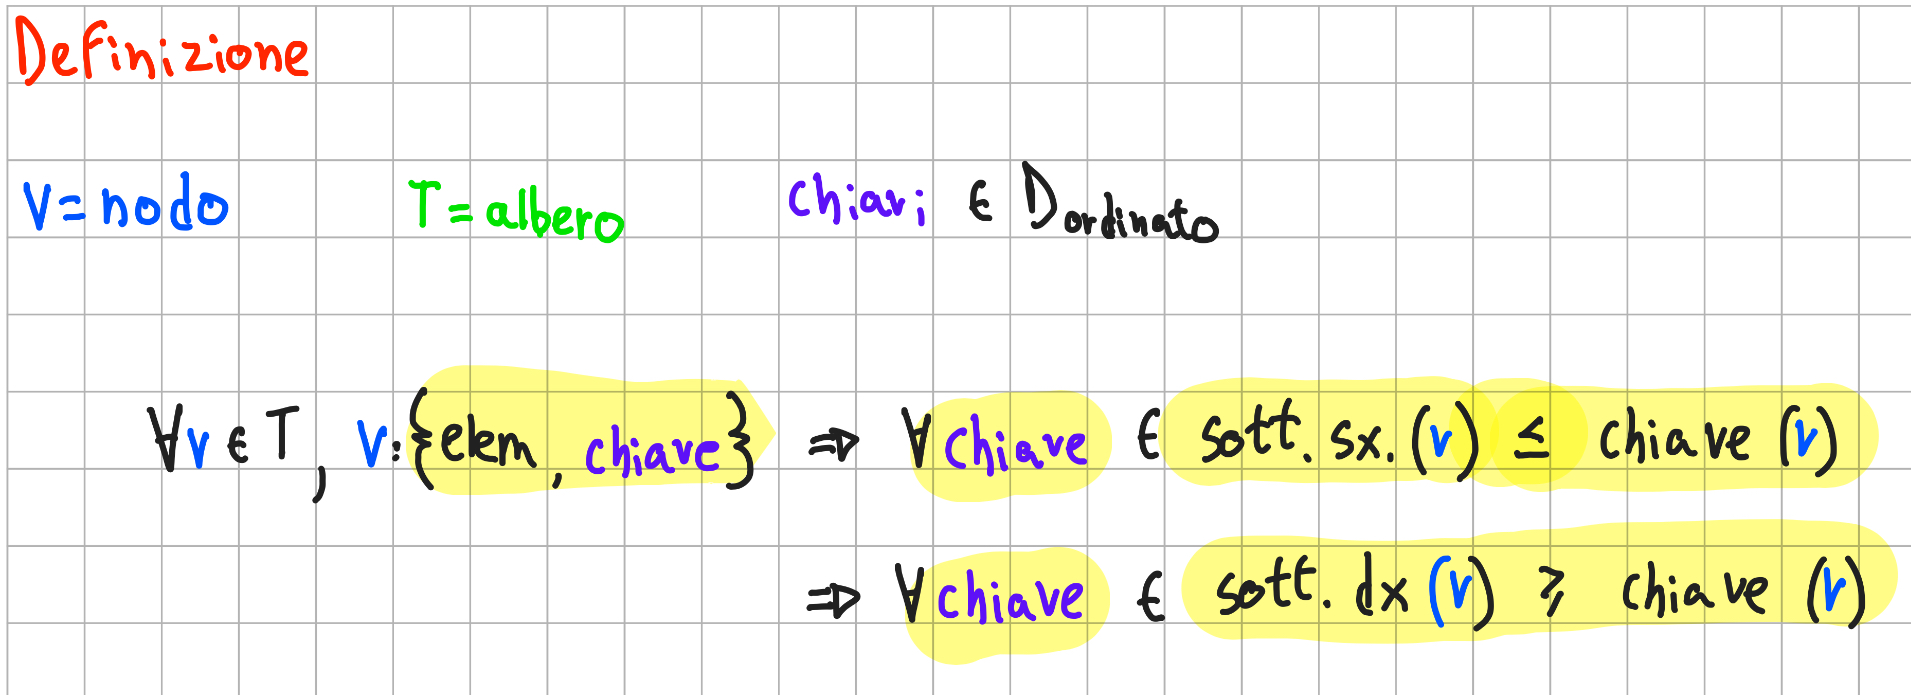 Definizione
V = nodo T = albero chiavi ∈ D ordinato
∀v ∈ T, v: {elem, chiave} ⇒ ∀ chiave ∈ sott. sx. (v) ≤ chiave (v)
⇒ ∀ chiave ∈ sott. dx (v) ≥ chiave (v)